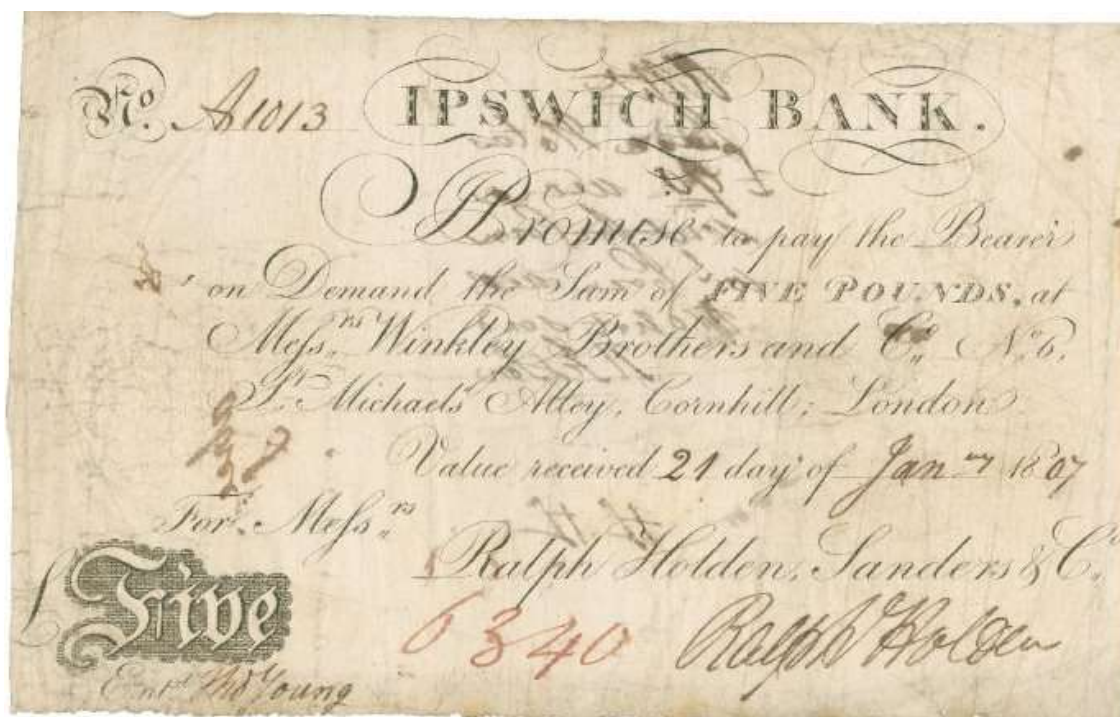 No. A1013 IPSWICH BANK.
I Promise to pay the Bearer
on Demand the Sum of FIVE POUNDS, at
Messrs Winkley Brothers and Co. No. 6,
St. Michael's Alley, Cornhill, London
Value received 21 day of Jany 1807
For Messrs
Ralph Holden, Sanders & Co.
£ Five
6340 Ralph Holden
Entd Thos Young